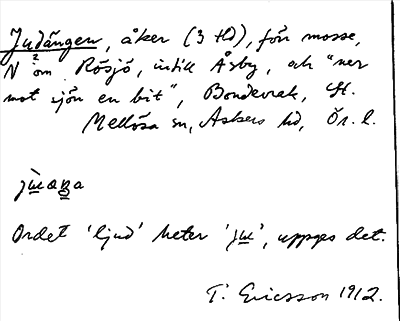 Judängen, åker (3 tld), förr mosse,
N om Rösjö, intill Åsby, och "ner
mot sjön en bit", Bondevrak, St.
Mellösa sn, Askers hd, Ör. l.
Ordet 'ljud' heter 'jɯ', uppges det.
T. Ericsson 1912.